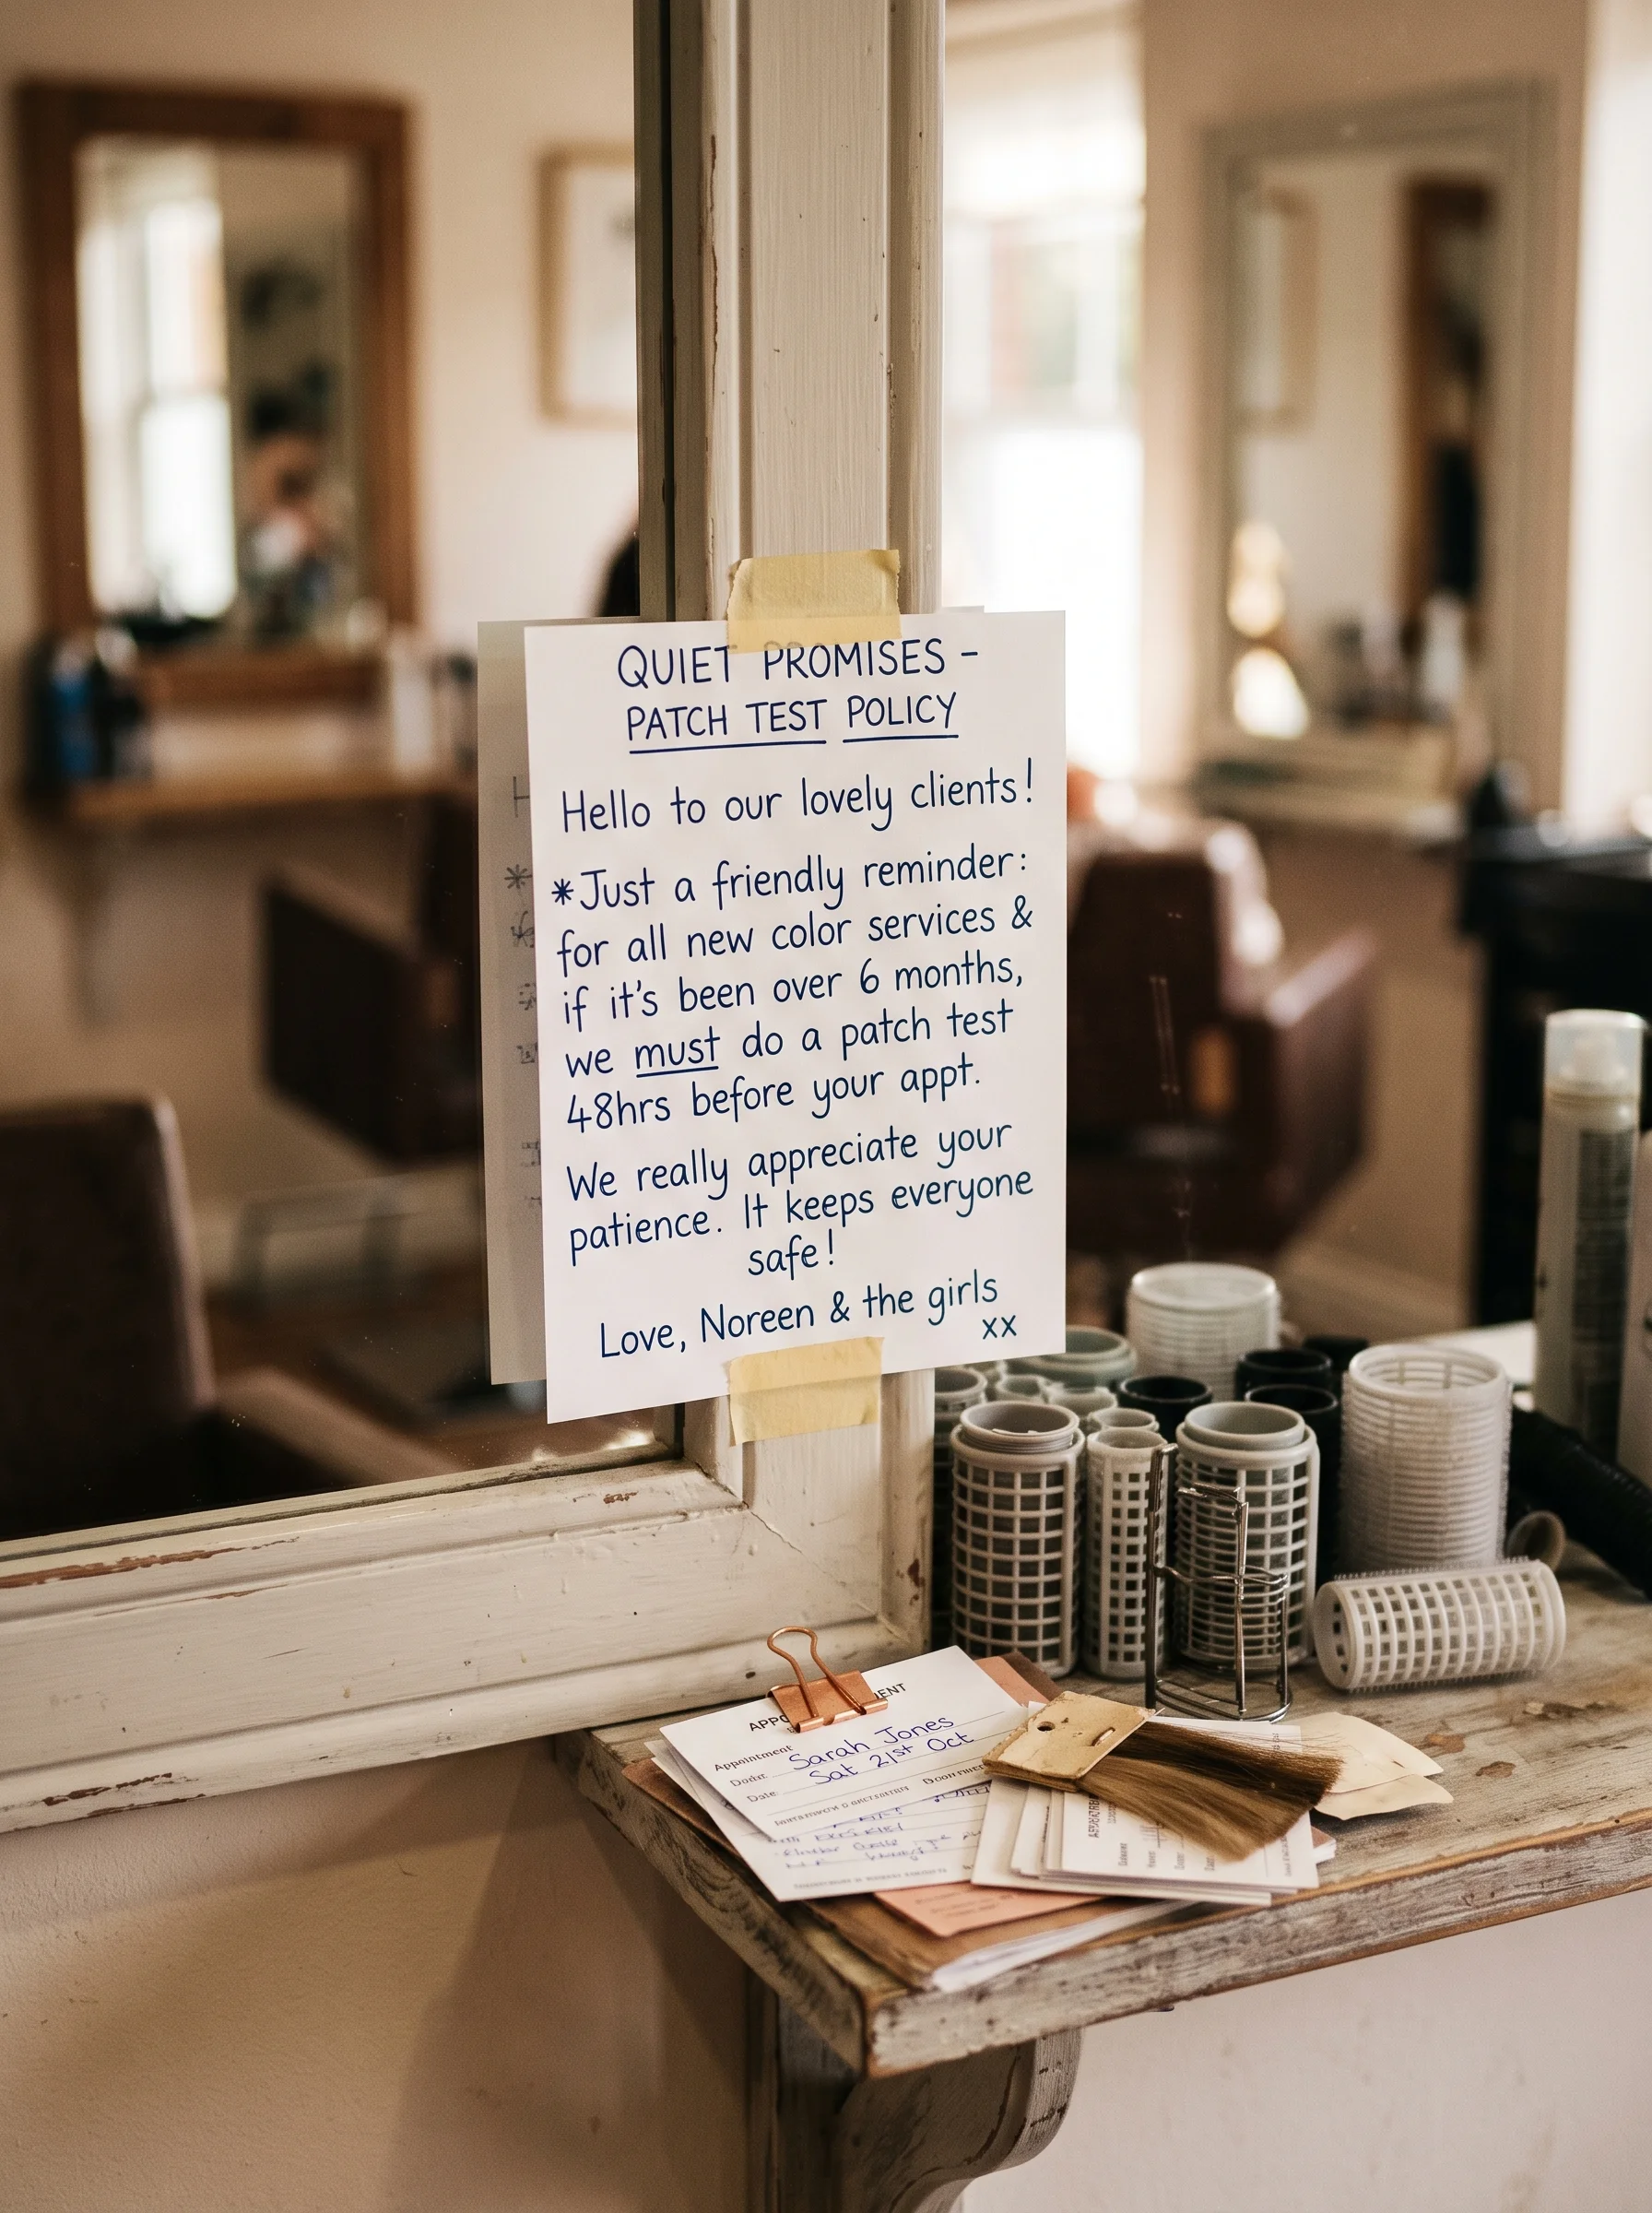 QUIET PROMISES -
PATCH TEST POLICY
Hello to our lovely clients!
*Just a friendly reminder:
for all new color services &
if it's been over 6 months,
we must do a patch test
48hrs before your appt.
We really appreciate your
patience. It keeps everyone
safe!
Love, Noreen & the girls
xx
Appointment
Sarah Jones
Sat 21st Oct
Date